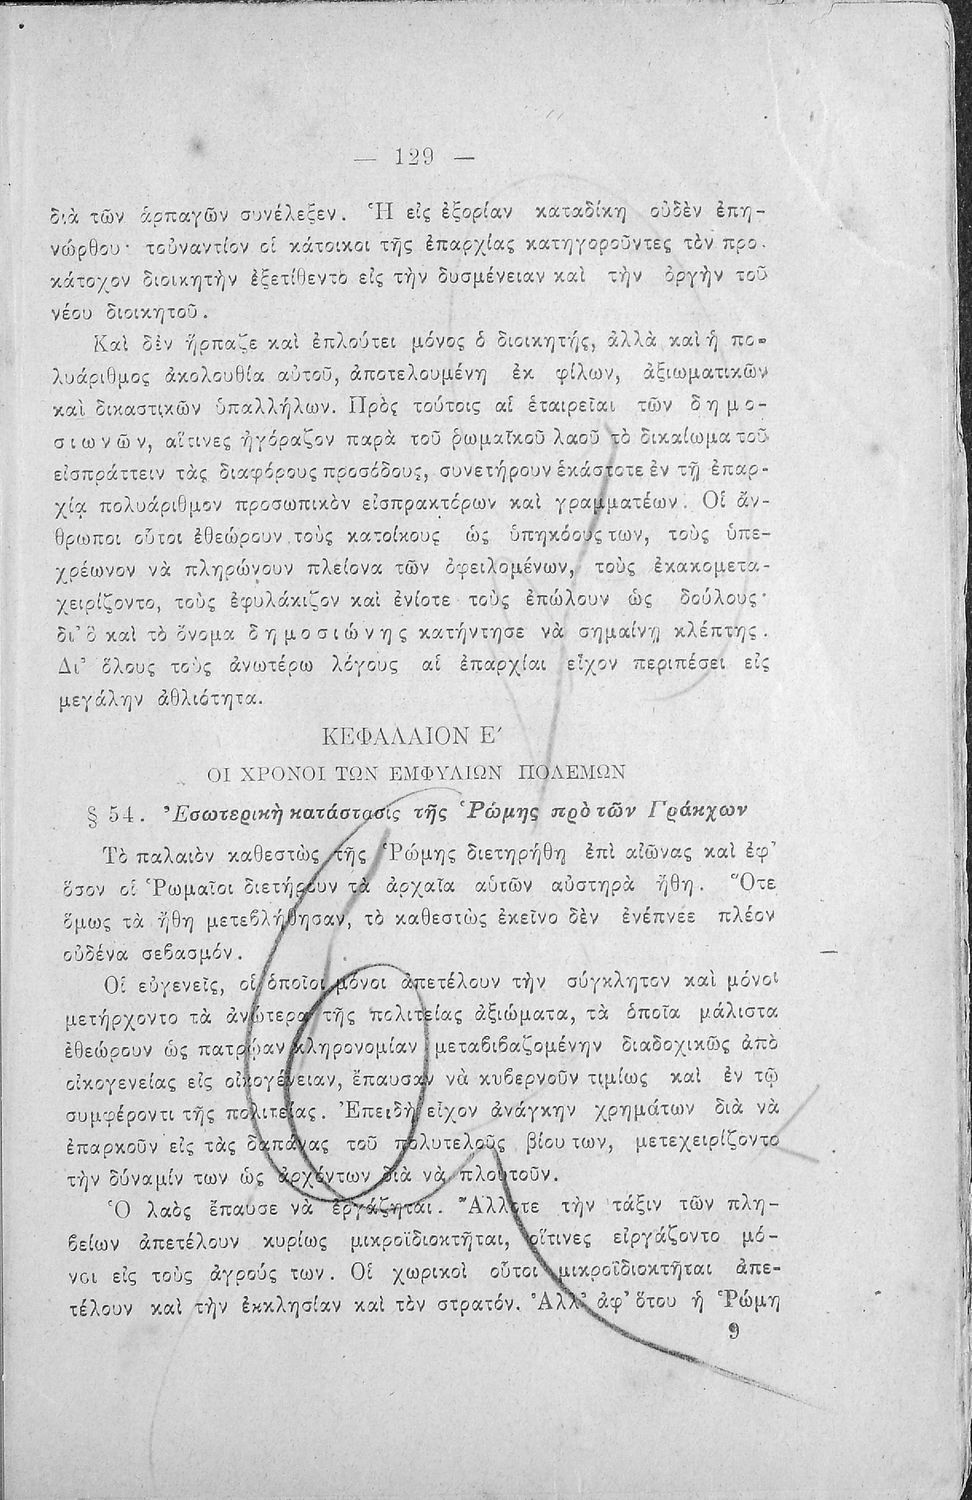 — 129 —
διὰ τῶν ἁρπαγῶν συνέλεξεν. Ἡ εἰς ἐξορίαν καταδίκη οὐδὲν ἐπη-
νώρθου· τοὐναντίον οἱ κάτοικοι τῆς ἐπαρχίας κατηγοροῦντες τὸν προ-
κάτοχον διοικητὴν ἐξετίθεντο εἰς τὴν δυσμένειαν καὶ τὴν ὀργὴν τοῦ
νέου διοικητοῦ.
Καὶ δὲν ἥρπαζε καὶ ἐπλούτει μόνος ὁ διοικητής, ἀλλὰ καὶ ἡ πο-
λυάριθμος ἀκολουθία αὐτοῦ, ἀποτελουμένη ἐκ φίλων, ἀξιωματικῶν
καὶ δικαστικῶν ὑπαλλήλων. Πρὸς τούτοις αἱ ἑταιρεῖαι τῶν δημο-
σιωνῶν, αἵτινες ἠγόραζον παρὰ τοῦ ῥωμαϊκοῦ λαοῦ τὸ δικαίωμα τοῦ
εἰσπράττειν τὰς διαφόρους προσόδους, συνετήρουν ἑκάστοτε ἐν τῇ ἐπαρ-
χίᾳ πολυάριθμον προσωπικὸν εἰσπρακτόρων καὶ γραμματέων. Οἱ ἄν-
θρωποι οὗτοι ἐθεώρουν τοὺς κατοίκους ὡς ὑπηκόους των, τοὺς ὑπε-
χρέωνον νὰ πληρώνουν πλείονα τῶν ὀφειλομένων, τοὺς ἐκακομετα-
χειρίζοντο, τοὺς ἐφυλάκιζον καὶ ἐνίοτε τοὺς ἐπώλουν ὡς δούλους·
δι' ὃ καὶ τὸ ὄνομα δημοσιώνης κατήντησε νὰ σημαίνῃ κλέπτης.
Δι' ὅλους τοὺς ἀνωτέρω λόγους αἱ ἐπαρχίαι εἶχον περιπέσει εἰς
μεγάλην ἀθλιότητα.
ΚΕΦΑΛΑΙΟΝ Ε΄
ΟΙ ΧΡΟΝΟΙ ΤΩΝ ΕΜΦΥΛΙΩΝ ΠΟΛΕΜΩΝ
§ 54. Ἐσωτερικὴ κατάστασις τῆς Ῥώμης πρὸ τῶν Γράκχων
Τὸ παλαιὸν καθεστὼς τῆς Ῥώμης διετηρήθη ἐπὶ αἰῶνας καὶ ἐφ'
ὅσον οἱ Ῥωμαῖοι διετήρουν τὰ ἀρχαῖα αὑτῶν αὐστηρὰ ἤθη. Ὅτε
ὅμως τὰ ἤθη μετεβλήθησαν, τὸ καθεστὼς ἐκεῖνο δὲν ἐνέπνεε πλέον
οὐδένα σεβασμόν.
Οἱ εὐγενεῖς, οἱ ὁποῖοι μόνοι ἀπετέλουν τὴν σύγκλητον καὶ μόνοι
μετήρχοντο τὰ ἀνώτερα τῆς πολιτείας ἀξιώματα, τὰ ὁποῖα μάλιστα
ἐθεώρουν ὡς πατρῴαν κληρονομίαν μεταβιβαζομένην διαδοχικῶς ἀπὸ
οἰκογενείας εἰς οἰκογένειαν, ἔπαυσαν νὰ κυβερνοῦν τιμίως καὶ ἐν τῷ
συμφέροντι τῆς πολιτείας. Ἐπειδὴ εἶχον ἀνάγκην χρημάτων διὰ νὰ
ἐπαρκοῦν εἰς τὰς δαπάνας τοῦ πολυτελοῦς βίου των, μετεχειρίζοντο
τὴν δύναμίν των ὡς ἀρχόντων διὰ νὰ πλουτοῦν.
Ὁ λαὸς ἔπαυσε νὰ ἐργάζηται. Ἄλλοτε τὴν τάξιν τῶν πλη-
βείων ἀπετέλουν κυρίως μικροϊδιοκτῆται, οἵτινες εἰργάζοντο μό-
νοι εἰς τοὺς ἀγρούς των. Οἱ χωρικοὶ οὗτοι μικροϊδιοκτῆται ἀπε-
τέλουν καὶ τὴν ἐκκλησίαν καὶ τὸν στρατόν. Ἀλλ' ἀφ' ὅτου ἡ Ῥώμη
9